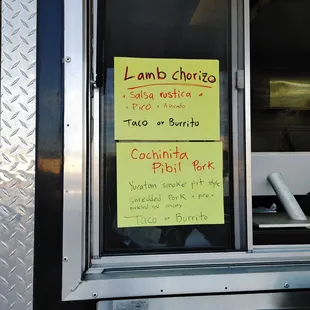 Lamb chorizo
Salsa rustica
• Pico • Avocado
Taco or Burrito
Cochinita
Pibil Pork
Yucatan smoke pit style
shredded Pork
pickled red onions
Taco or Burrito